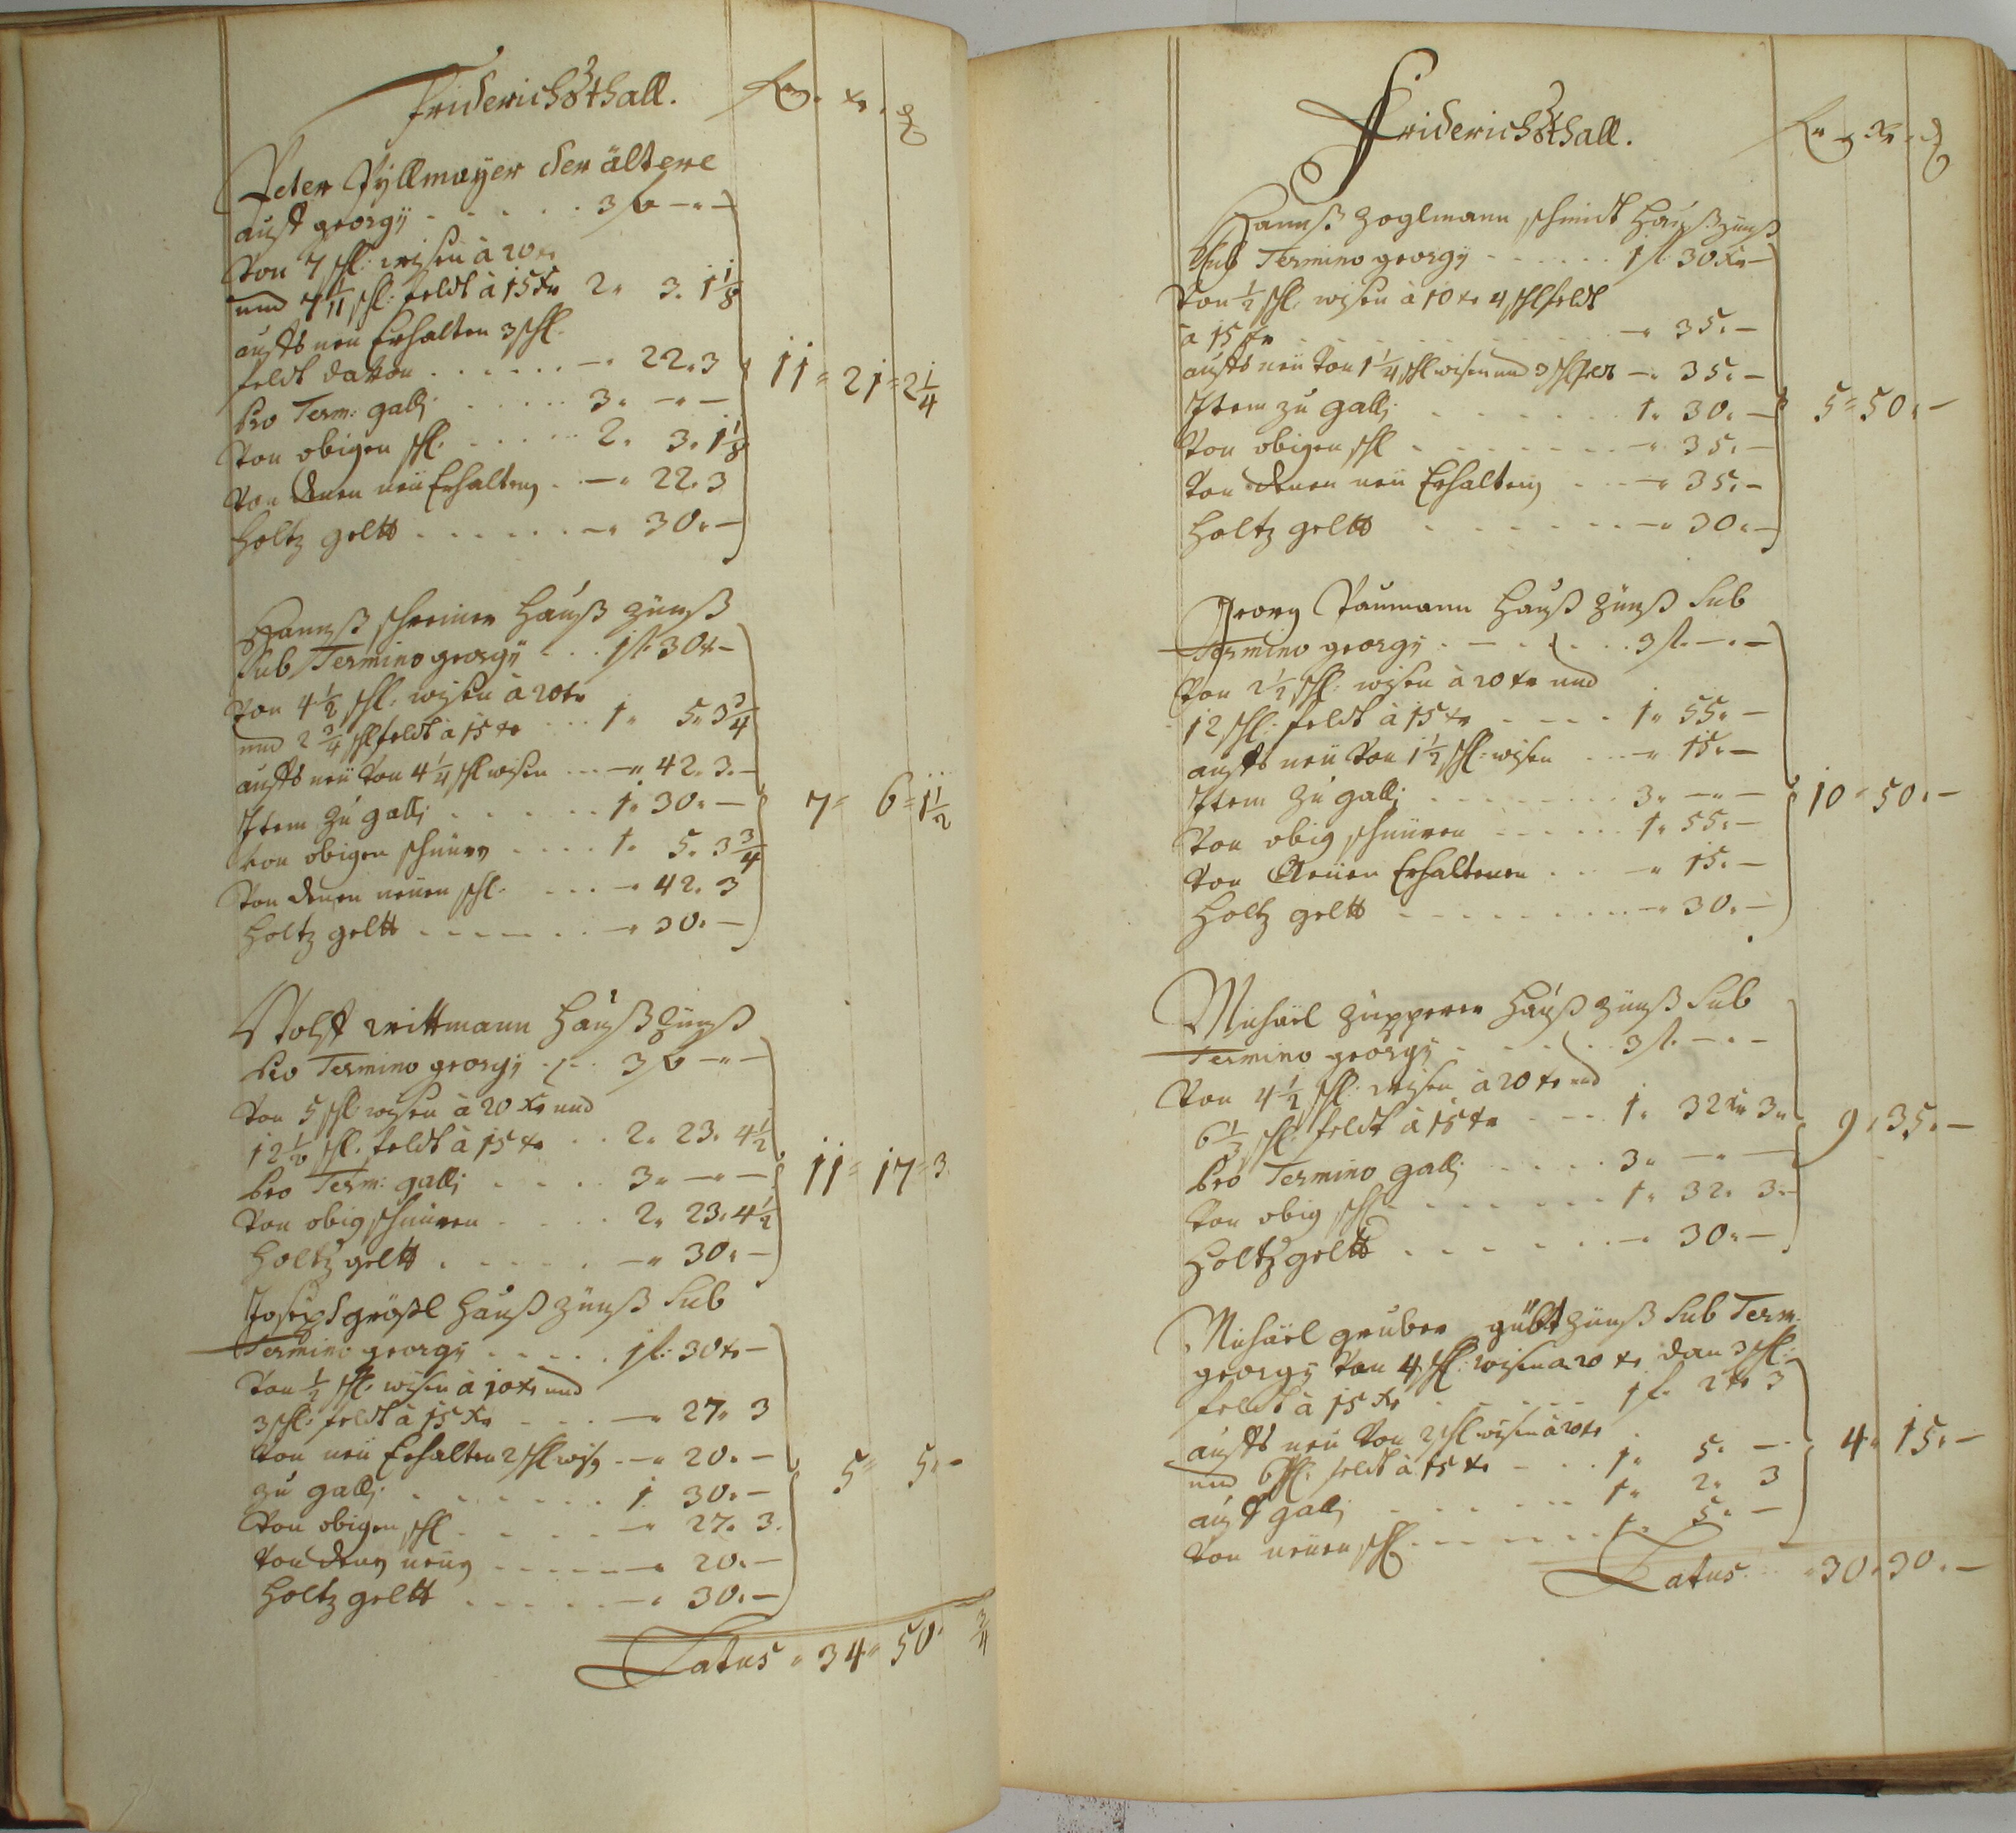 Friderichsthall. fl. xr. d
Peter Pyllmayer der ältere
auff georgÿ - - - - - 3 fl - " -
Von 7 schl: wisen à 20 xr
und 7 1/11 schl: feldt à 15 xr 2 " 3. 1 1/8
auffs neu Erhalten 3 schl.
feldt davon . . . . . . - " 22. 3
Pro Term: gallj . . . . . 3 " - " -
Von obigen schl. . . . . . 2. 3. 1 1/8
Von denen neü Erhalteng . . - " 22. 3
Holtz geltt . . . . . . - " 30. -
11 = 21 = 2 1/4
Hannß schreiner Hauß zünß
Sub Termino georgÿ . . . 1 fl. 30 xr -
Von 4 1/2 schl: wisen à 20 xr
und 2 3/4 schl feldt à 15 xr . . . 1 " 5 " 3 3/4
auffs neü Von 4 1/4 schl wisen . . . - " 42. 3. -
Item zu gallj . . . . . . 1 " 30. -
Von obigen schnürn . . . . 1. 5. 3 3/4
Von denen neüen schl. . . . - " 42. 3
Holtz geltt . . . . . . - " 30. -
7 = 6 = 1 1/2
Wolff wittmann Hauß Zünß
Pro Termino georgÿ . . . 3 fl - " -
Von 5 schl wisen à 20 xr und
12 1/2 schl. feldt à 15 xr . . 2 " 23. 4 1/2
Pro Term: gallj . . . . 3 " - " -
Von obig schnüren . . . . 2 " 23. 4 1/2
Holtz geltt . . . . . - " 30. -
11 = 17 = 3.
Joseph größl Hauß zünß Sub
Termino georgÿ . . . . . 1 fl: 30 xr -
Von 1/2 schl. wisen à 10 xr und
3 schl: feldt à 15 xr . . . - " 27 " 3
Von neü Erhalten 2 schl wisg . . - " 20. -
zu gallj . . . . . . . 1. 30. -
Von obigen schl . . . . . - " 27. 3.
Von deng neüg . . . . . - " 20. -
Holtz geltt . . . . . - " 30. -
5 = 5. -
Latus " 34 " 50. 3/4
Friderichsthall. fl. xr. d
Hannß Zoglmann schmidt Haußzünß
Sub Termino georgÿ . . . . . . 1 fl. 30 xr -
Von 1/2 schl. wisen à 10 xr 4 schl feldt
à 15 xr . . . . . . - " 35. -
auffs neü Von 1 1/4 schl wisen und 3 schl feldt - " 35. -
Item zu gallj . . . . . . 1. 30. -
Von obigen schl . . . . . . - " 35. -
Von denen neü Erhalteng . . . - " 35. -
Holtz geltt . . . . . . - " 30. -
5 = 50. -
Georg Naumann Hauß Zünß Sub
Termino georgÿ . . . . . . 3 fl. - . -
Von 2 1/2 schl: wisen à 20 xr und
12 schl: feldt à 15 xr . . . . 1 " 55. -
auffs neü Von 1 1/2 schl: wisen . . . - " 15. -
Item Zu gallj . . . . . . . 3 " - " -
Von obig schnüren . . . . . . 1 " 55. -
Von Neüen Erhaltenen . . . - " 15. -
Holtz geltt . . . . . . . - " 30. -
10 " 50. -
Michäel Zupperer Hauß zünß Sub
Termino georgÿ . . . . . 3 fl. - . -
Von 4 1/2 schl: wisen à 20 xr und
6 1/3 schl: feldt à 15 xr . . . 1 " 32 xr 3 "
Pro Termino gallj . . . . . 3 " - " -
Von obig schl . . . . . . . 1 " 32. 3. -
Holtz geltt . . . . . . - " 30 " -
9 " 35. -
Michäel gruber gübt zünß Sub Term.
georgÿ Von 4 schl: wisen à 20 xr dan 3 schl:
feldt à 15 xr . . . . . 1 fl. 2 xr 3
auffs neü Von 2 schl wisen à 20 xr
und 6 schl: feldt à 15 xr . . . 1 " 5. -
auff gallj . . . . . . . 1 " 2 " 3
Von neüen schl . . . . . . 1 " 5. -
4 " 15. -
Latus " 30 " 30. -